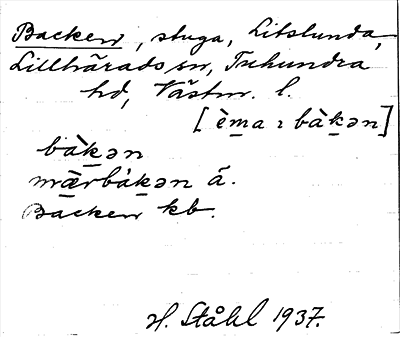 Backen, stuga, Litslunda,
Lillhärads sn, Tuhundra
hd, Västm. l.
[èma ı bàkən]
bàkən
mǽrbàkən ä.
Backen kb.
H. Ståhl 1937.